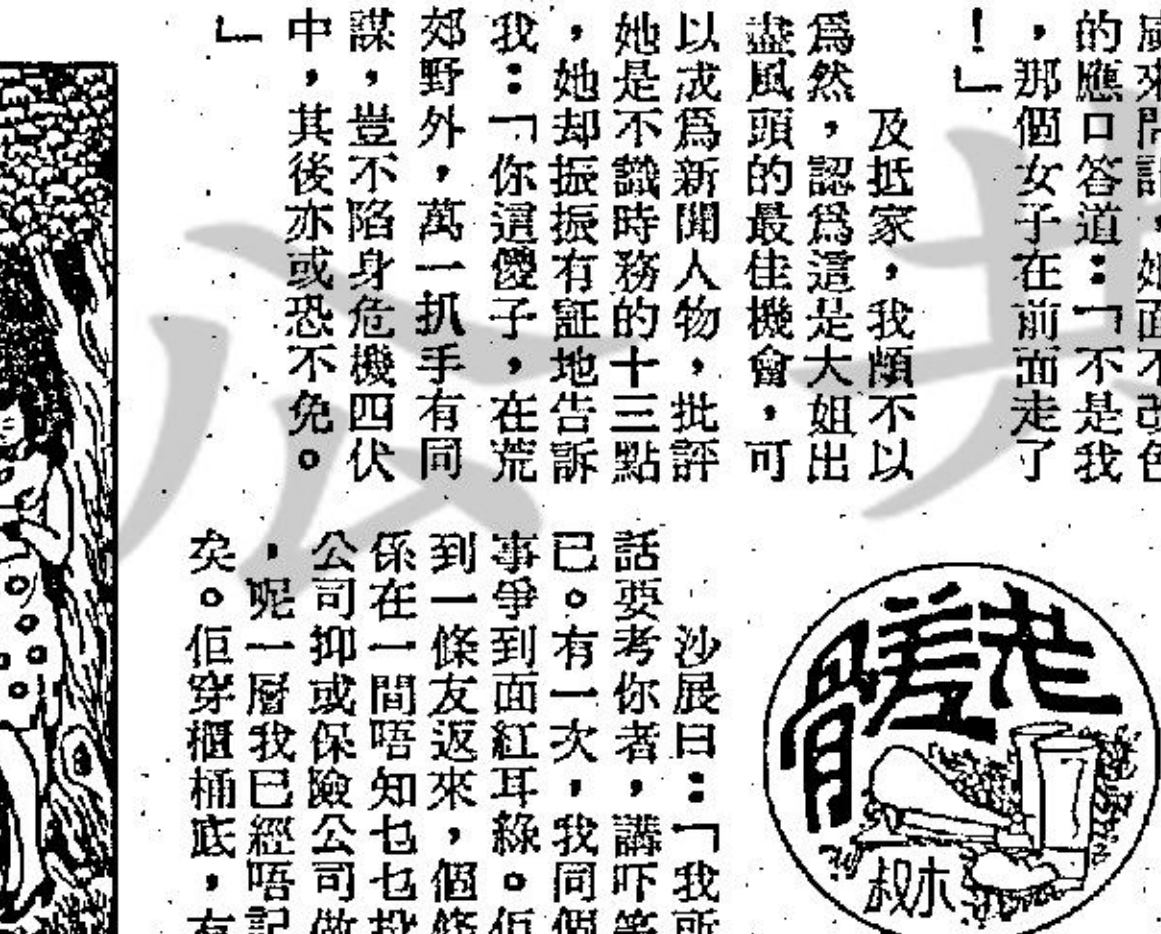 廠來問話，她面不改色
的應口答道：「不是我
，那個女子在前面走了
！」
及抵家，我頗不以
爲然，認爲這是大姐出
盡風頭的最佳機會，可
以成爲新聞人物，批評
她是不識時務的十三點
，她却振振有証地告訴
我：「你這儍子，在荒
郊野外，萬一扒手有同
謀，豈不陷身危機四伏
中，其後亦或恐不免。
」
老差骨
木叔
沙展曰：「我所
話要考你者，講吓笑
已。有一次，我同個
事爭到面紅耳綠。佢
到一條友返來，個條
係在一間唔知乜乜投
公司抑或保險公司做
，呢一層我已經唔記
矣。佢穿櫃桶底，有
公共